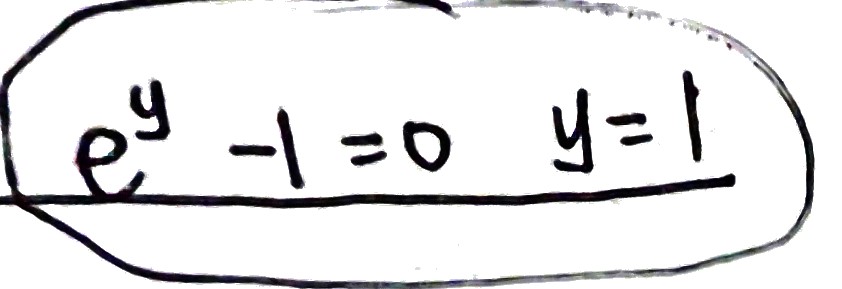 e^y -1 = 0 y = 1